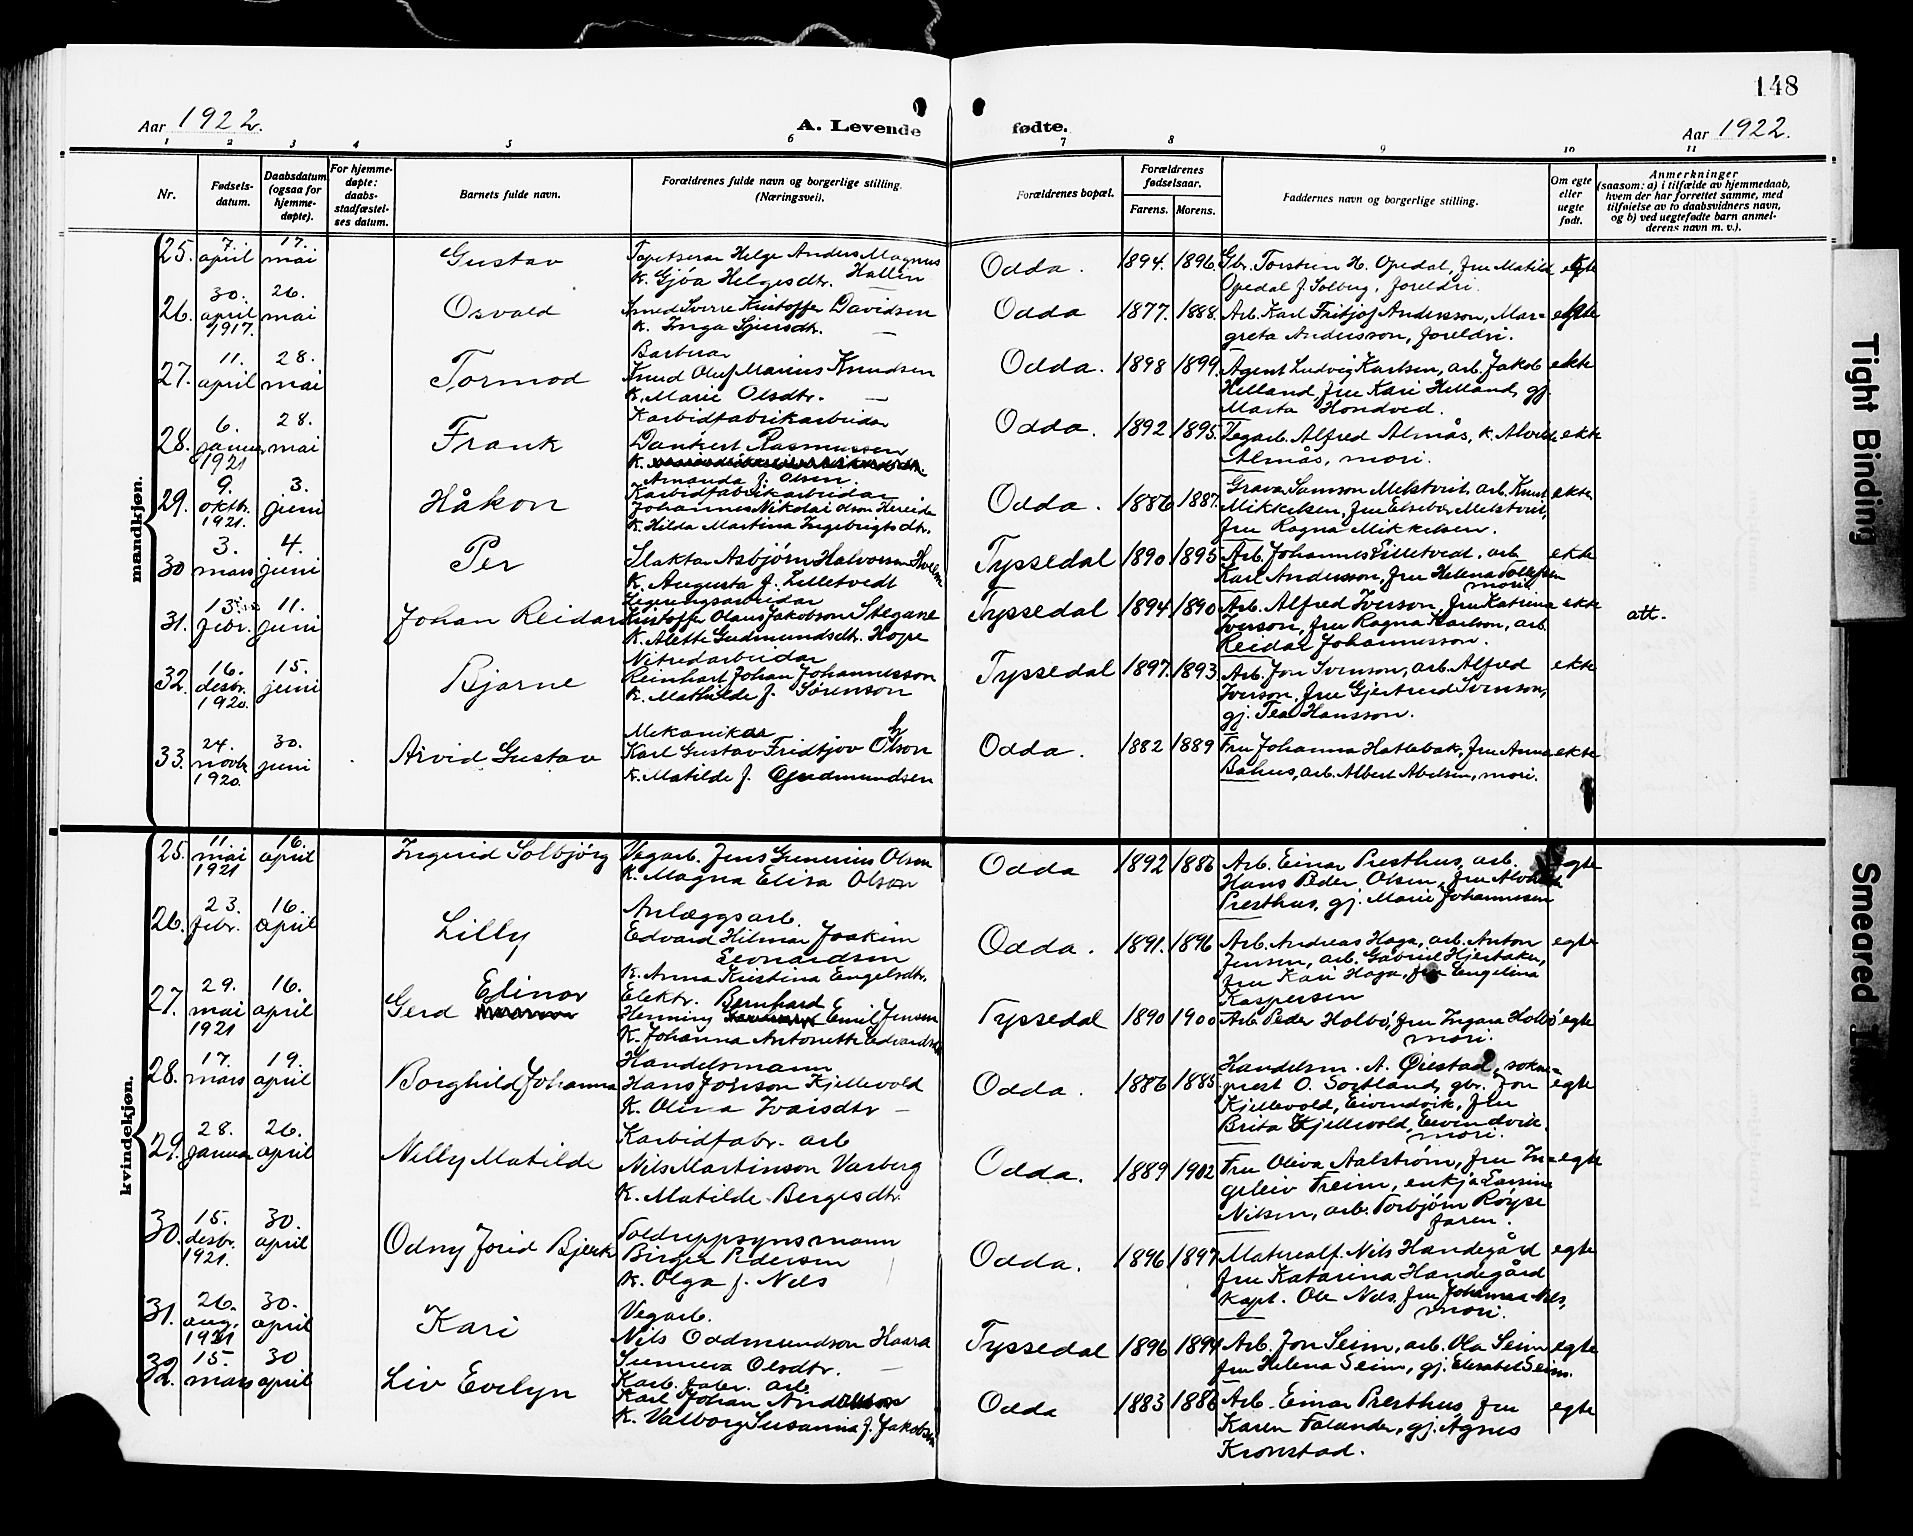 148
Aar 1922.
A. Levende
fødte.
Aar 1922.
1 2 3 4 5 6 7 8 9 10 11
Nr.
Fødsels-
datum.
Daabsdatum
(ogsaa for
hjemme-
døpte).
For hjemme-
døpte:
daabs-
stadfæstel-
ses datum.
Barnets fulde navn.
Forældrenes fulde navn og borgerlige stilling.
(Næringsvei).
Forældrenes bopæl.
Forældrenes
fødselsaar.
Farens. Morens.
Faddernes navn og borgerlige stilling.
Om egte
eller
uegte
født.
Anmerkninger
(saasom: a) i tilfælde av hjemmedaab,
hvem der har forrettet samme, med
tilføielse av to daabsvidners navn,
og b) ved uegtefødte barn anmel-
derens navn m. v.).
mandkjøn.
25. 7. april 17. mai Gustav
Tapetserar Helge Anders Magnus
K. Gjøa Helgesdtr. Hallin
Odda. 1894. 1896.
Gbr. Torstein H. Opedal, fru Matild
Opedal f. Solberg, foreldri.
26. 30. april 1917. 26. mai Osvald
Smed Sverre Kristoffer Davidsen
K. Inga Sjursdtr. —
Odda 1877. 1888.
Arb. Karl Fritjof Andersson, Mar-
greta Andersson, foreldri.
27. 11. april 28. mai Tormod
Barberar
Knud Oluf Marius Knudsen
K. Marie Olsdtr. —
Odda. 1898 1899. ekte
Agent Ludvig Karlsen, arb. Jakob
Helland, fru Kari Helland, gj.
Marta Hondved.
28. 6. januar 1921 28. mai Frank
Karbidfabrikarbeidar
Dankert Rasmussen
K.
Amanda f. Olsen.
Odda. 1892 1895. ekte
Alfred Almås, K. Alvilde
Almås, mori.
29. 9. oktbr. 1921. 3. juni Håkon
Karbidfabrikarbeidar
Johannes Nikolai Olson Hereide
K. Hilda Martina Ingebrigtsdtr.
Odda. 1886 1887. ekte
Samson Melstveit, arb. Knut
Mikkelsen, fru Melstveit,
fru Ragna Mikkelsen.
30 3. mars 4. juni Per
Slaktar Asbjørn Halvorsen
K. Augusta f. Lilletvedt
Tyssedal 1890 1895 ekte
Arb. Johannes Lilletvedt, arb.
Karl Andersson, fru Helena Tollefsen
mori.
31. 13. febr. 11. juni Johan Reidar
Kristoffer Olaus Jakobson Stegane
K. Alette Gudmundsdtr. Hope
Tyssedal 1894 1890 ekte att.
Arb. Alfred Iverson, fru Katrina
Iverson, fru Ragna Karlson, arb.
Reidar Johannesson.
32. 16. desbr. 1920. 15. juni Bjarne
Reinhart Johan Johannesson
K. Mathilde f. Sørenson
Tyssedal 1897. 1893. ekte
Arb. Jon Svenson, arb. Alfred
Iverson, fru Gjertrud Svenson,
gj. Tea Hansson.
33. 24. novbr 1920. 30. juni Arvid Gustav
Mekanikar
Karl Gustav Fridtjov Olson
K. Matilde f. Gudmundsen
Odda. 1882 1889 ekte
Fru Johanna Hattebak, fru Anna
Bohus, arb. Albert Abelsen, mori.
kvindekjøn.
25. 11. mai 1921 16. april Ingerid Solbjørg
Vegarb. Jens Gunerius Olsen
K. Magna Elisa Olson
Odda 1892 1886 egte
Arb. Einar Presthus, arb.
Hans Peder Olsen, fru
Presthus, gj. Marie Johannessen
26. 23. febr. 16. april Lilly
Anlæggsarb.
Edvard Hilmar Joakim
Leonardsen
K. Anna Kristina Engelsdtr.
Odda. 1891. 1896 egte
Arb. Andreas Haga, arb. Anton
Jensen, arb. Gabriel Hjertaker,
fru Kari Haga, fru Engelina
Kaspersen
27. 29. mai 1921 16. april Gerd Elinor
Elektr. Bernhard
Henning Emil Jensen
K. Johanna Antonette Edvardsd
Tyssedal 1890 1900 egte
Arb. Peder Holbø, fru Ingara Holbø
mori.
28. 17. mars 19. april Borghild Johanna
Handelsmann
Hans Jonson Kjellevold
K. Olina Ivarsdtr —
Odda. 1886 1885. egte
Handelsm. A. Øiestad, sokne-
prest O. Sortland, gbr. Jon
Kjellevold, Eivendvik, fru
Brita Kjellevold, Eivindvik.
mori.
29. 28. januar 26. april Nelly Matilde
Karbidfabr. arb
Nils Martinson Varberg
K. Matilde Bergesdtr.
Odda. 1889 1902 egte
Fru Oliva Aalstrøm, fru In-
geleiv Freim, enkja Larsine
Nilsen, arb. Torbjørn Røyse
faren.
30. 15. desbr. 1921. 30. april Odny Jorid Bjerk
Toldoppsynsmann
Birger Pedersen
K. Olga f. Nels
Odda. 1896 1897 egte
Materealf. Nils Handegård
fru Katarina Handegård
Kapt. Ole Nels, fru Johanna Nels,
mori.
31. 26. aug. 1921 30. april Kari
Vegarb.
Nils Oddmundson Haara
Sunneva Olsdtr. —
Tyssedal 1896 1894 egte
Arb. Jon Seim, arb. Ola Seim
fru Helena Seim, gj. Elisabet Seim.
32. 15. mars 30 april Liv Evelyn
Karb. fabr. arb
Karl Johan Andersson
K. Valborg Susanna f. Jakobsen
Odda 1883 1886 egte
Arb. Einar Presthus, fru
Karen Falander, gj. Agnes
Kronstad.
Tight Binding
Smeared